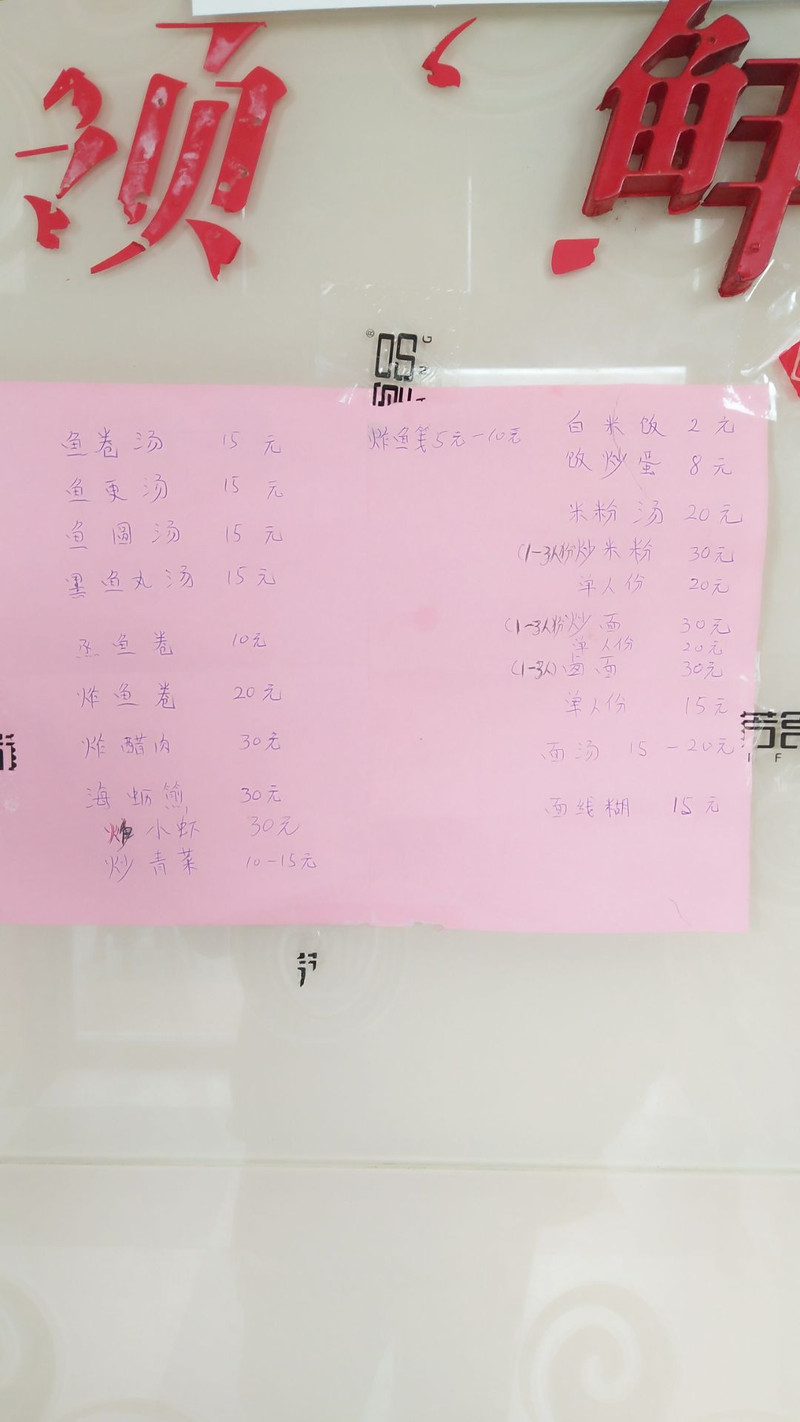 鲜
鱼卷汤 15元
鱼更汤 15元
鱼圆汤 15元
墨鱼丸汤 15元
蒸鱼卷 10元
炸鱼卷 20元
炸醋肉 30元
海蛎煎 30元
炸小虾 30元
炒青菜 10-15元
炸鱼笺5元-10元
白米饭 2元
饭炒蛋 8元
米粉汤 20元
(1-3人份)炒米粉 30元
单人份 20元
(1-3人份)炒面 30元
单人份 20元
(1-3人)卤面 30元
单人份 15元
面汤 15-20元
面线糊 15元